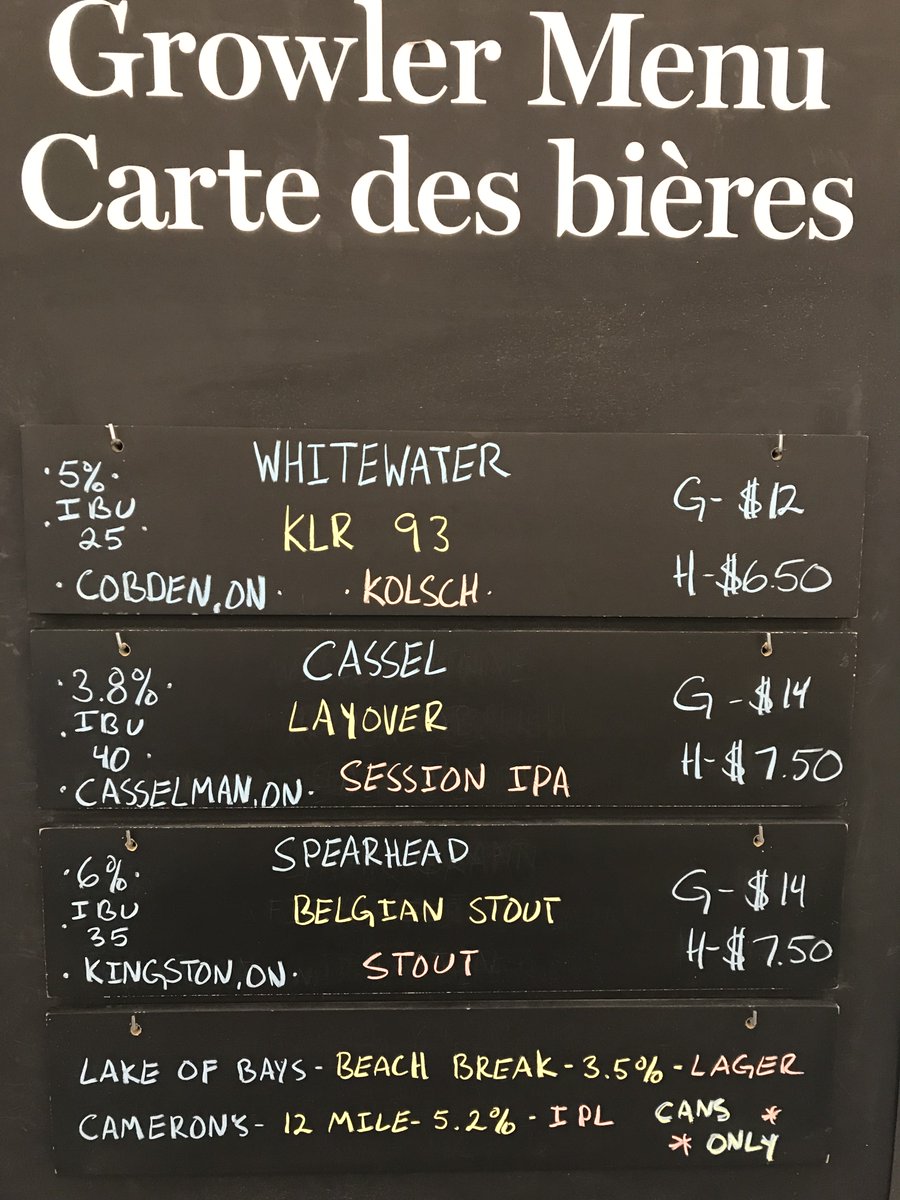 Growler Menu
Carte des bières
WHITEWATER
· 5% ·
KLR 93
· IBU
25 ·
G - $12
H - $6.50
· COBDEN, ON · · KOLSCH ·
CASSEL
· 3.8% ·
LAYOVER
· IBU
40 ·
G - $14
H - $7.50
· CASSELMAN, ON · SESSION IPA
SPEARHEAD
· 6% ·
BELGIAN STOUT
· IBU
35
G - $14
H - $7.50
· KINGSTON, ON · STOUT
LAKE OF BAYS - BEACH BREAK - 3.5% - LAGER
CAMERON'S - 12 MILE - 5.2% - IPL CANS *
* ONLY